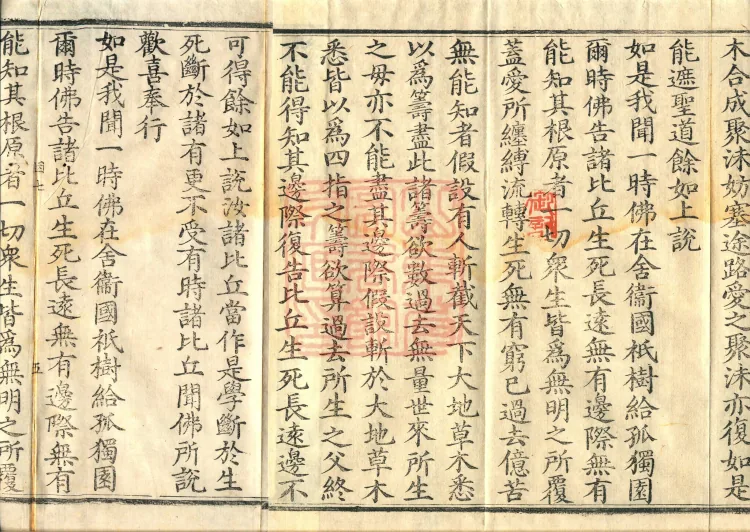 木合成聚沫妨塞途路愛之聚沫亦復如是
能遮聖道餘如上說
如是我聞一時佛在舍衞國祇樹給孤獨園
爾時佛告諸比丘生死長遠無有邊際無有
能知其根原者一切衆生皆爲無明之所覆
蓋愛所纏縛流轉生死無有窮已過去億苦
無能知者假設有人斬截天下大地草木悉
以爲籌盡此諸籌欲數過去無量世來所生
之母亦不能盡其邊際假設斬於大地草木
悉皆以爲四指之籌欲算過去所生之父終
不能得知其邊際復告比丘生死長遠邊不
可得餘如上說汝諸比丘當作是學斷於生
死斷於諸有更不受有時諸比丘聞佛所說
歡喜奉行
如是我聞一時佛在舍衞國祇樹給孤獨園
爾時佛告諸比丘生死長遠無有邊際無有
五
能知其根原者一切衆生皆爲無明之所覆